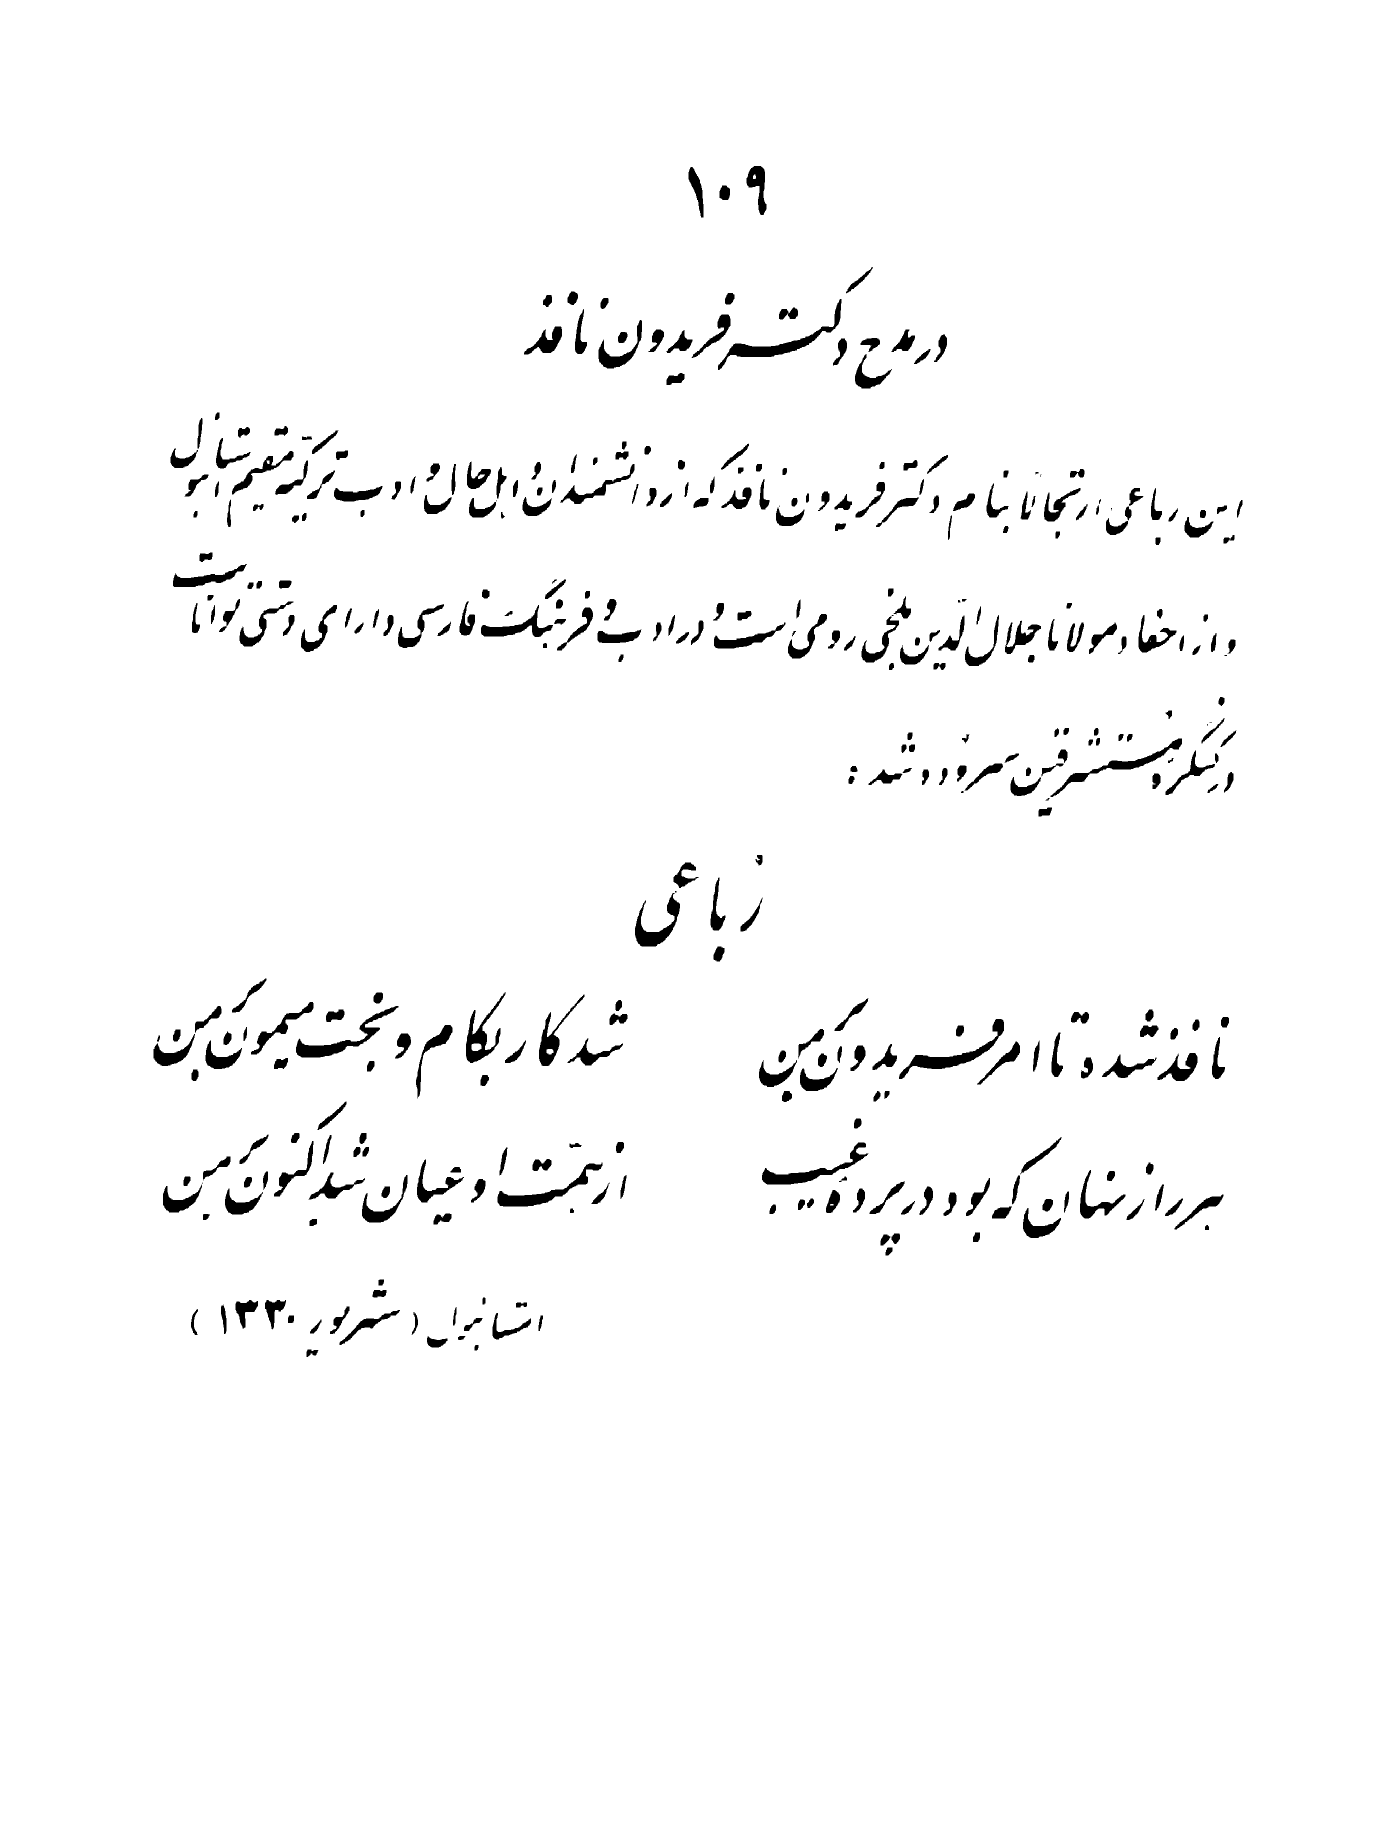 ۱۰۹
در مدح دکتر فریدون نافذ
این رباعی ارتجالاً بنام دکتر فریدون نافذ که از دانشمندان و اهل حال و ادب ترکیه مقیم استانبول
و از احفاد مولانا جلال الدّین بلخی رومی است و در ادب و فرهنگ فارسی دارای دستی تواناست
در کنگرهٔ مستشرقین سروده شد :
رُباعی
نافذ شده تا امر فریدونیِ من
شد کار بکام و بخت میمونیِ من
هر راز نهان که بود در پردهٔ غیب
از همّت او عیان شد اکنونیِ من
استانبول ( شهریور ۱۳۳۰ )